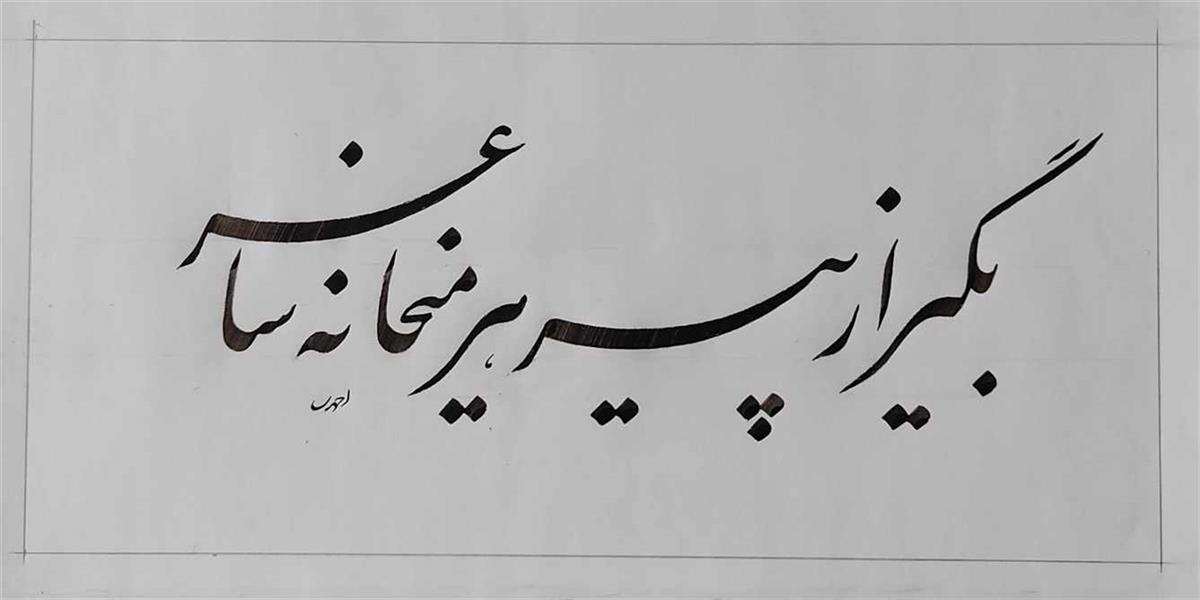 بگیر از پیر هر میخانه ساغر